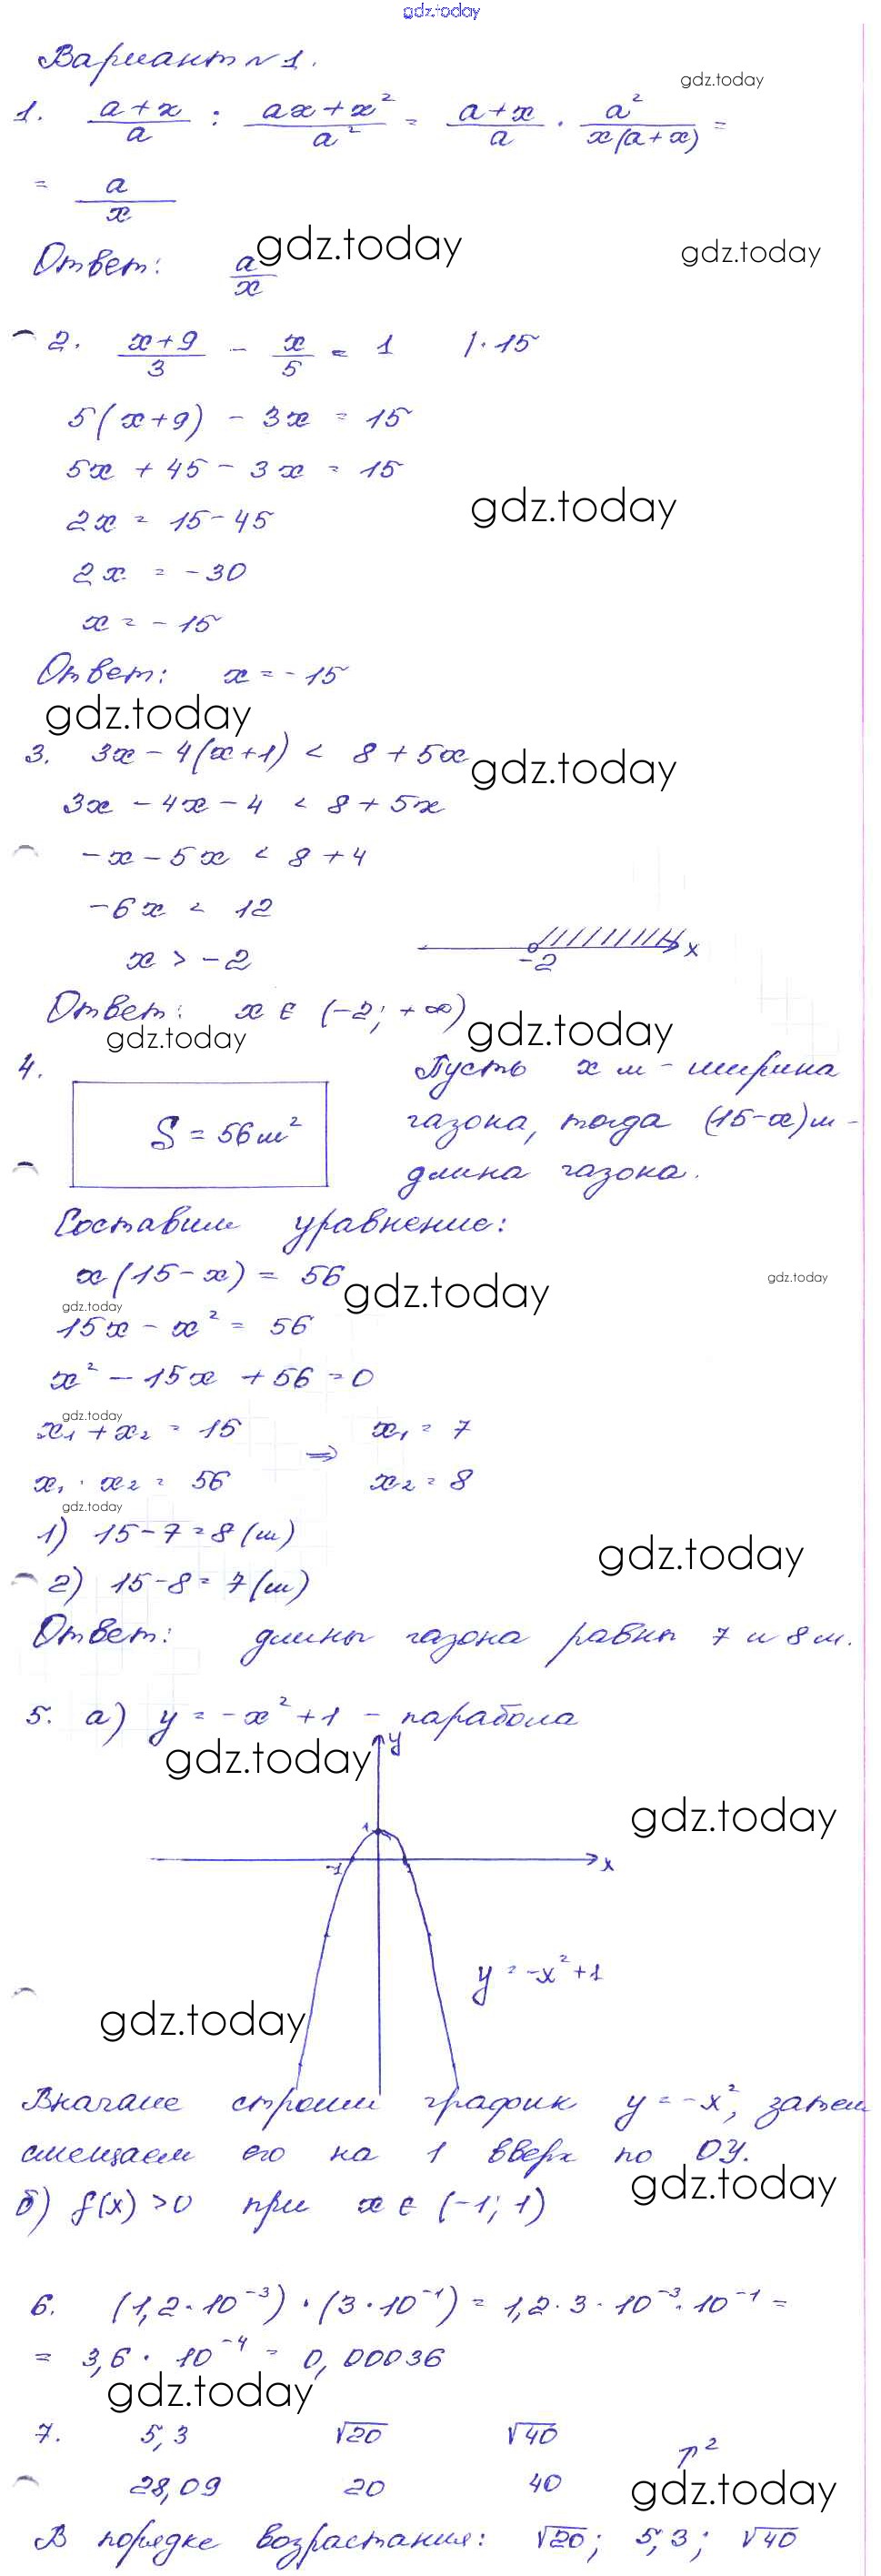 gdz.today
Вариант №1.
gdz.today
1. (a+x)/a : (ax+x²)/a² = (a+x)/a · a²/(x(a+x)) =
= a/x
gdz.today
Ответ: a/x
gdz.today
2. (x+9)/3 - x/5 = 1 |·15
5(x+9) - 3x = 15
5x + 45 - 3x = 15
gdz.today
2x = 15-45
2x = -30
x = -15
Ответ: x = -15
gdz.today
3. 3x - 4(x+1) < 8 + 5x
gdz.today
3x - 4x - 4 < 8 + 5x
-x - 5x < 8 + 4
-6x < 12
x > -2
-2 x
Ответ: x ∈ (-2; +∞)
gdz.today
gdz.today
4. Пусть x м - ширина
S = 56 м² газона, тогда (15-x) м -
длина газона.
Составим уравнение:
x(15-x) = 56
gdz.today
gdz.today
gdz.today
15x - x² = 56
x² - 15x + 56 = 0
gdz.today
x₁ + x₂ = 15 x₁ = 7
⇒
x₁ · x₂ = 56 x₂ = 8
gdz.today
1) 15-7=8 (м)
gdz.today
2) 15-8=7 (м)
Ответ: длины газона равны 7 и 8 м.
5. а) y = -x² + 1 - парабола
gdz.today
y
gdz.today
1
-1 1 x
y = -x²+1
gdz.today
Вначале строим график y = -x², затем
смещаем его на 1 вверх по OY.
gdz.today
б) f(x) > 0 при x ∈ (-1; 1)
6. (1,2·10⁻³) · (3·10⁻¹) = 1,2·3·10⁻³·10⁻¹ =
= 3,6 · 10⁻⁴ = 0,00036
gdz.today
7. 5,3 √20 √40
↑²
28,09 20 40
gdz.today
В порядке возрастания: √20; 5,3; √40